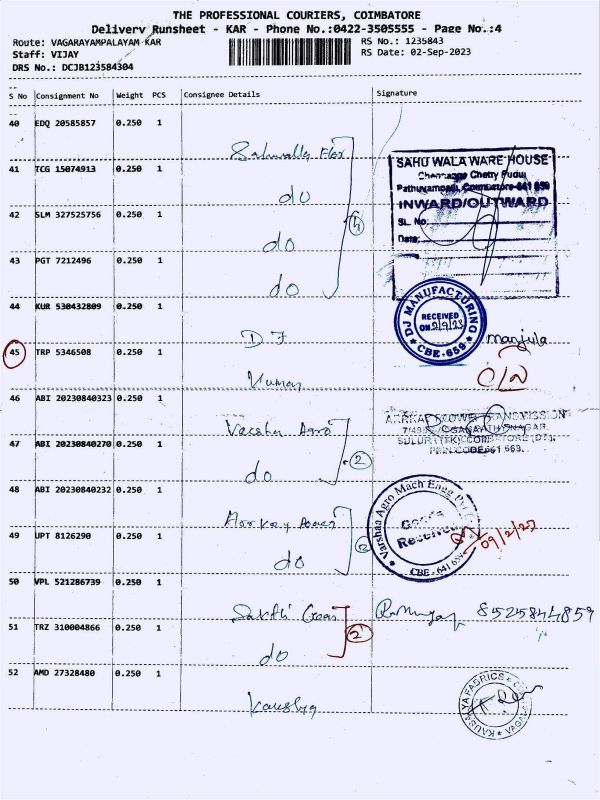 THE PROFESSIONAL COURIERS, COIMBATORE
Delivery Runsheet - KAR - Phone No.:0422-3505555 - Page No.:4
Route: VAGARAYAMPALAYAM KAR
RS No.: 1235843
Staff: VIJAY
RS Date: 02-Sep-2023
DRS No.: DCJB123584304
S No Consignment No Weight PCS Consignee Details Signature
40 EDQ 20585857 0.250 1
41 TCG 15074913 0.250 1
do
42 SLM 327525756 0.250 1
do
43 PGT 7212496 0.250 1
do
44 KUR 530432809 0.250 1
D J
45 TRP 5346508 0.250 1
Kumar
46 ABI 20230840323 0.250 1
Varsha Agro
47 ABI 20230840270 0.250 1
do
2
48 ABI 20230840232 0.250 1
49 UPT 8126290 0.250 1
do
2
50 VPL 521286739 0.250 1
Sakthi Gear
51 TRZ 310004866 0.250 1
do
2
52 AMD 27328480 0.250 1
SAHUWALA WARE HOUSE
Chennappa Chetty Pudur
Pathuvampalli, Coimbatore-641 659
INWARD/OUTWARD
SL. No.
Date:
DJ MANUFACTURING
RECEIVED
ON 2/9/23
* CBE-659 *
manjula
SULUR (TK), COIMBATORE (DT).
PIN CODE 641 659.
Varshaa Agro Mach Engg
Goods
Received
CBE - 641 659
09/2/23
8525844859
KAUSALYA FABRICS